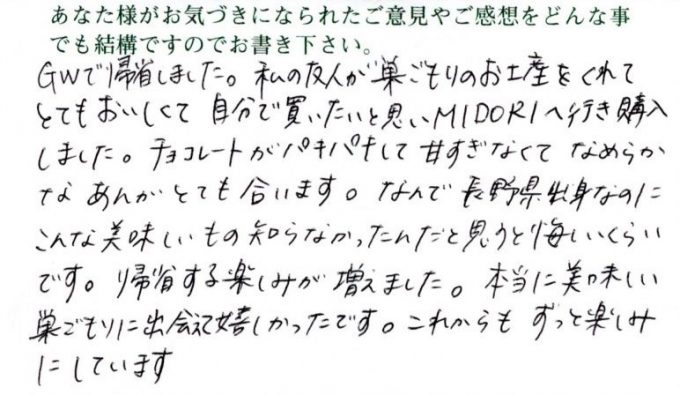 あなた様がお気づきになられたご意見やご感想をどんな事
でも結構ですのでお書き下さい。
GWで帰省しました。私の友人が巣ごもりのお土産をくれて
とてもおいしくて自分で買いたいと思いMIDORIへ行き購入
しました。チョコレートがパキパキして甘すぎなくてなめらか
なあんがとても合います。なんで長野県出身なのに
こんな美味しいもの知らなかったんだと思うと悔しいくらい
です。帰省する楽しみが増えました。本当に美味しい
巣ごもりに出会えて嬉しかったです。これからもずっと楽しみ
にしています